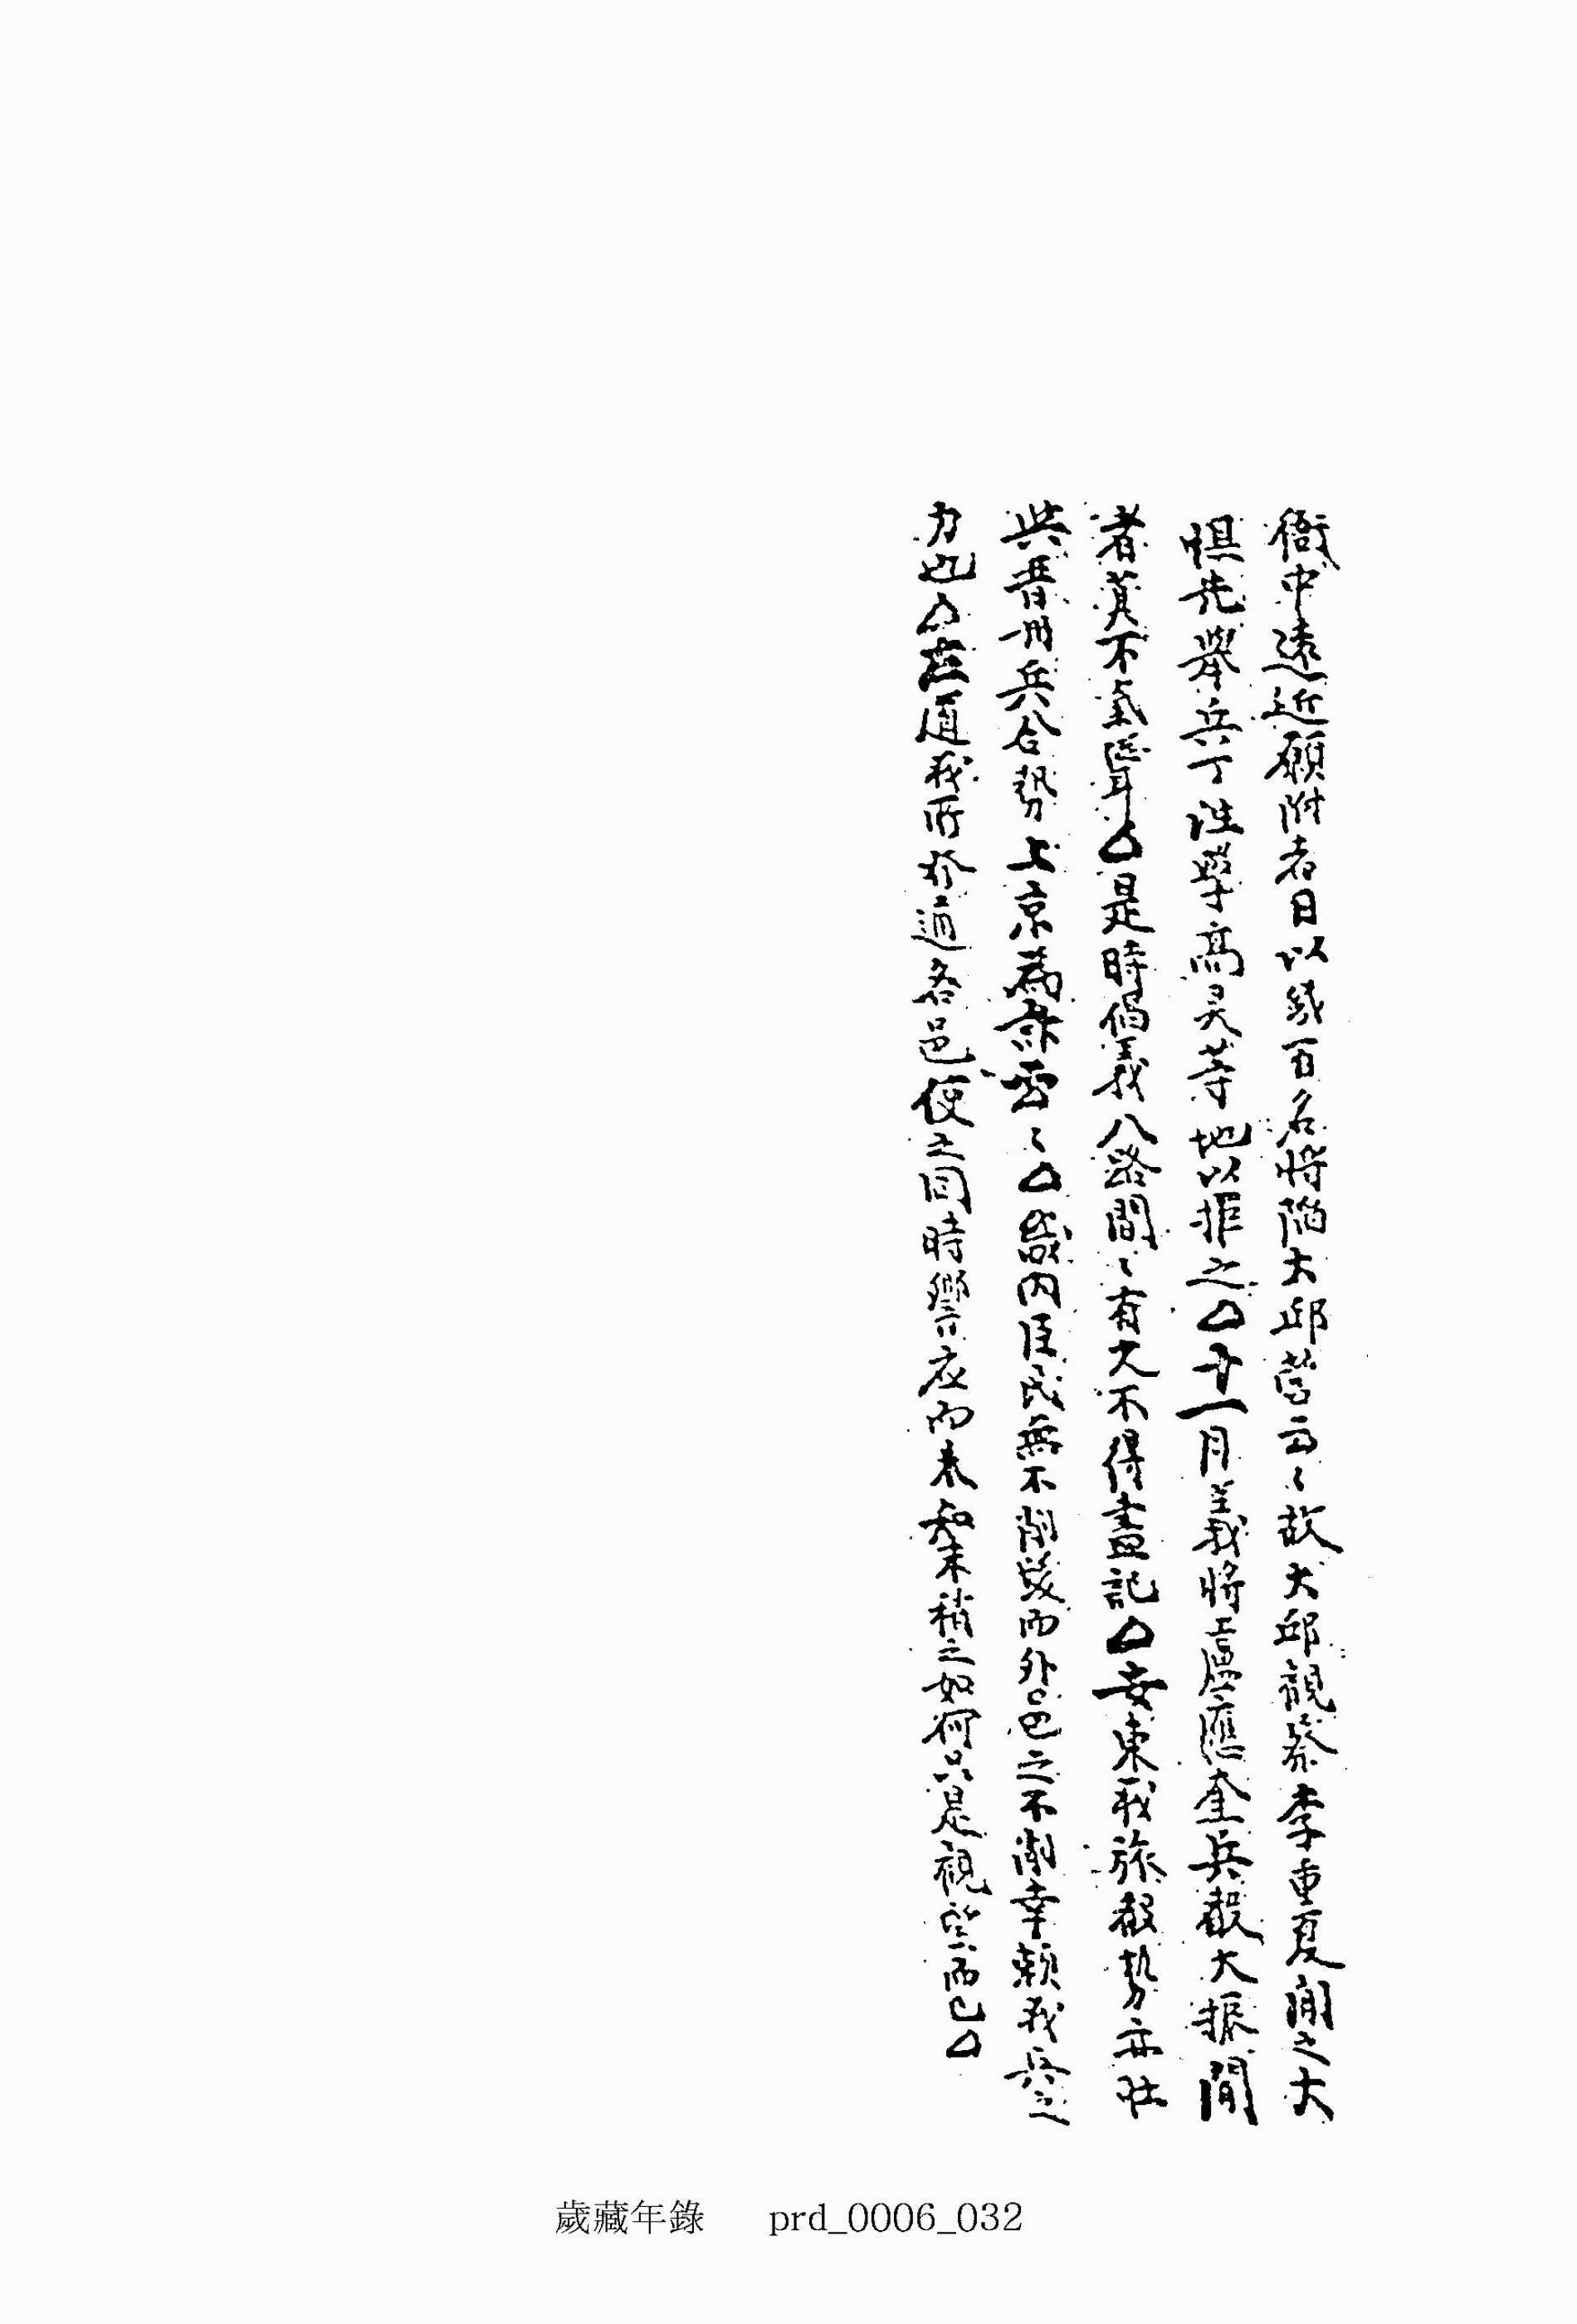 衙中遠近願附者日以幾百名將陷大邱營云〻故大邱觀察李重夏聞之大
惧先擧兵丁往擊高灵等地以拒之△十一月義將盧應奎兵聲大振聞
者莫不氣聳△是時倡義八路間〻有之不得盡記△安東我旅聲勢亦壯
與晋州兵合勢上京爲計云〻△畿內臣民無不削髮而外邑之不削幸賴我兵之
力也△左道我所於道各邑使之同時響应而未知末稍之如何只是觀望而已△
歲藏年錄 prd_0006_032